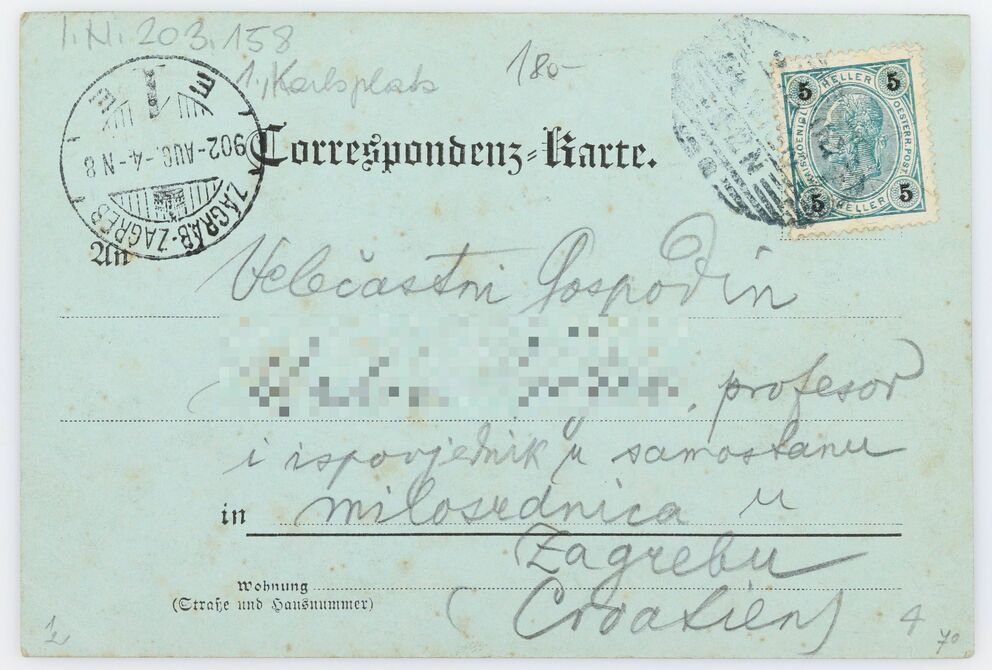 I.N. 203.158
1., Karlsplatz
180-
ZÁGRÁB-ZAGREB
902-AUG.-4.-N 8
Correspondenz-Karte.
5 HELLER 5
OESTERR. POST
5 HELLER 5
An
Velečastni Gospodin
, profesor
i ispovjednik u samostanu
in milosrdnica u
Zagrebu
Wohnung
(Straße und Hausnummer)
(Croatien)
4
70